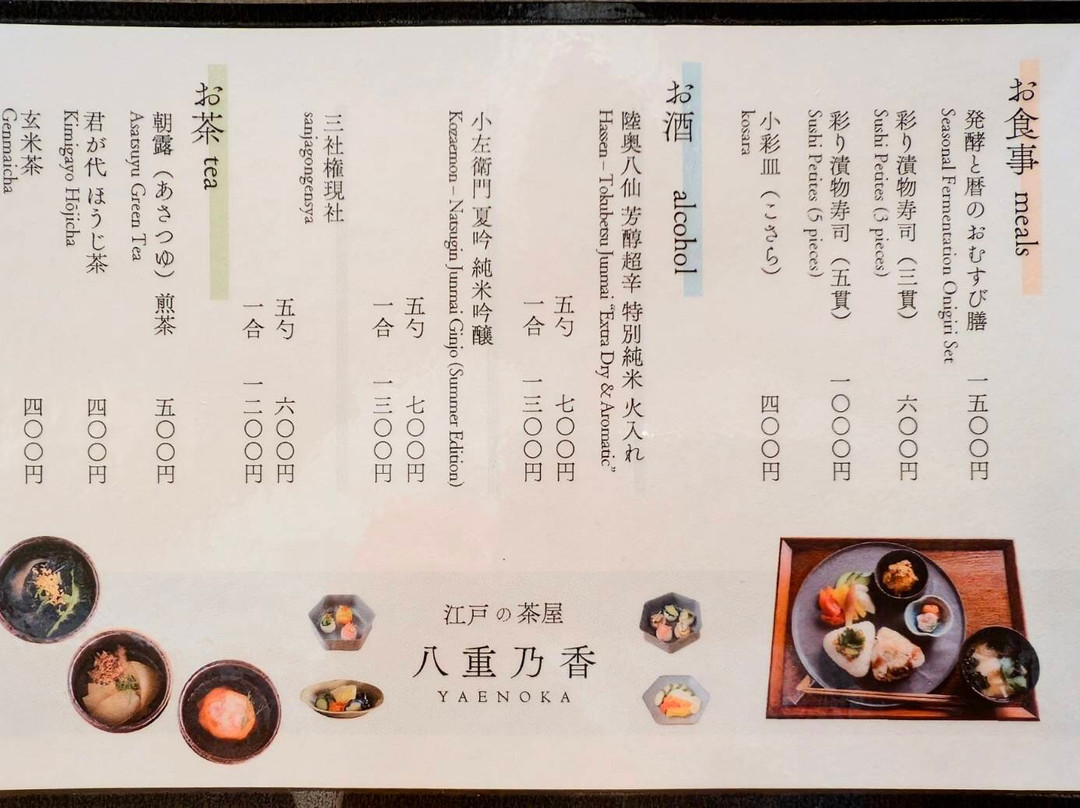 お食事 meals
発酵と暦のおむすび膳 一五〇〇円
Seasonal Fermentation Onigiri Set
彩り漬物寿司（三貫） 六〇〇円
Sushi Petites (3 pieces)
彩り漬物寿司（五貫） 一〇〇〇円
Sushi Petites (5 pieces)
小彩皿（こさら） 四〇〇円
kosara
お酒 alcohol
陸奥八仙 芳醇超辛 特別純米 火入れ
Hassen – Tokubetsu Junmai "Extra Dry & Aromatic"
五勺 七〇〇円
一合 一三〇〇円
小左衛門 夏吟 純米吟醸
Kozaemon – Natsugin Junmai Ginjo (Summer Edition)
五勺 七〇〇円
一合 一三〇〇円
三社権現社
sanjagongensya
五勺 六〇〇円
一合 一二〇〇円
お茶 tea
朝露（あさつゆ）煎茶 五〇〇円
Asatsuyu Green Tea
君が代 ほうじ茶 四〇〇円
Kimigayo Hojicha
玄米茶 四〇〇円
Genmaicha
江戸の茶屋
八重乃香
YAENOKA